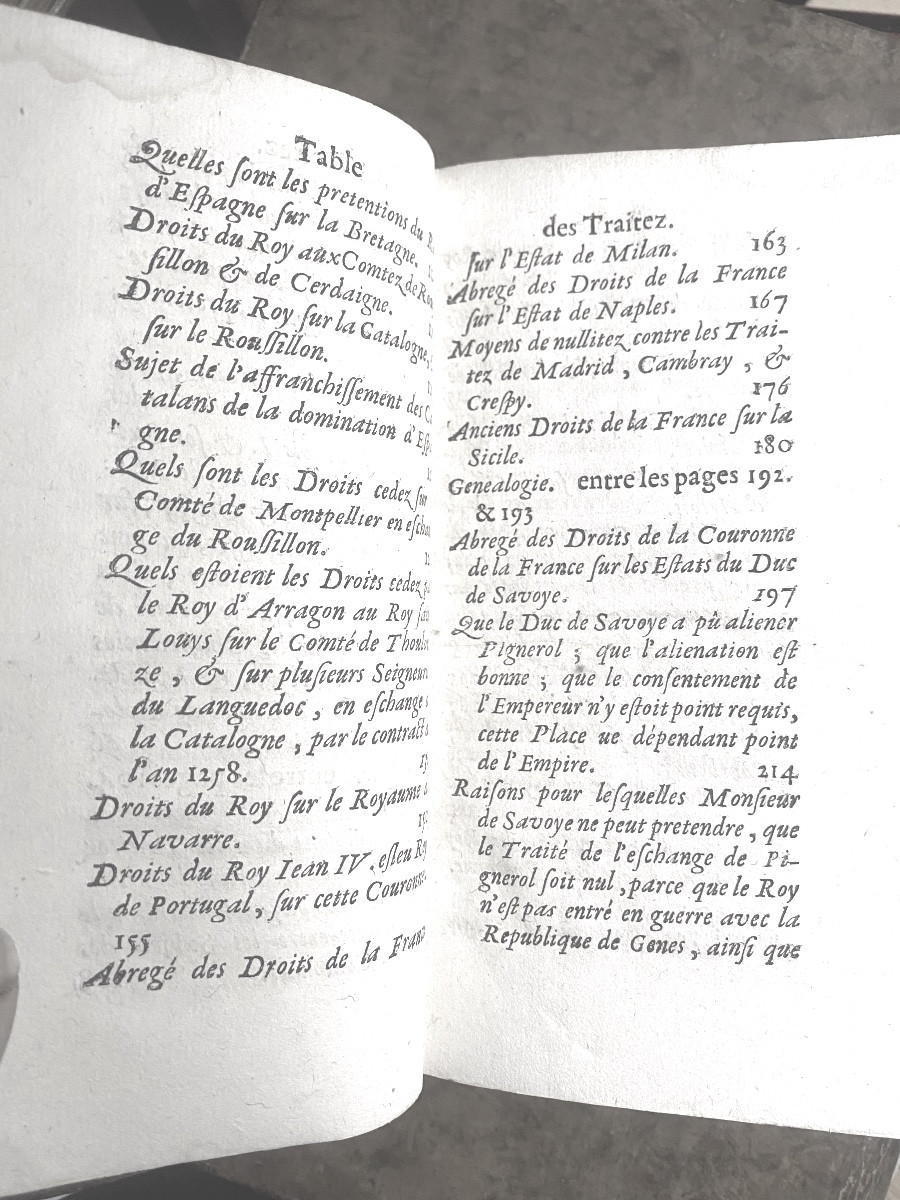 Table
Quelles ſont les pretentions du
d'Eſpagne ſur la Bretagne.
Droits du Roy aux Comtez de Rou
ſillon & de Cerdaigne.
Droits du Roy ſur la Catalogne,
ſur le Rouſſillon.
Sujet de l'affranchiſſement des C
talans de la domination d'Eſp
gne.
Quels ſont les Droits cedez ſur
Comté de Montpellier en eſcha
ge du Rouſſillon.
Quels eſtoient les Droits cedez
le Roy d'Arragon au Roy ſa
Louys ſur le Comté de Thoul
ze, & ſur pluſieurs Seigneur
du Languedoc, en eſchange
la Catalogne, par le contract
l'an 1258.
Droits du Roy ſur le Royaume
Navarre.
Droits du Roy Iean IV. eſleu Ro
de Portugal, ſur cette Couronne
155
Abregé des Droits de la Franc
des Traitez.
ſur l'Eſtat de Milan. 163
Abregé des Droits de la France
ſur l'Eſtat de Naples. 167
Moyens de nullitez contre les Trai-
tez de Madrid, Cambray, &
Creſpy. 176
Anciens Droits de la France ſur la
Sicile. 180
Genealogie. entre les pages 192.
& 193
Abregé des Droits de la Couronne
de la France ſur les Eſtats du Duc
de Savoye. 197
Que le Duc de Savoye a pû aliener
Pignerol ; que l'alienation eſt
bonne ; que le conſentement de
l'Empereur n'y eſtoit point requis,
cette Place ue dépendant point
de l'Empire. 214
Raiſons pour leſquelles Monſieur
de Savoye ne peut pretendre, que
le Traité de l'eſchange de Pi-
gnerol ſoit nul, parce que le Roy
n'eſt pas entré en guerre avec la
Republique de Genes, ainſi que